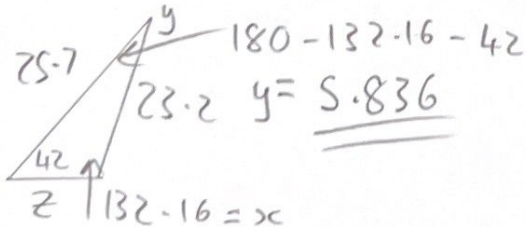 y
180-132.16-42
25.7
23.2 y= 5.836
42
z 132.16 = x